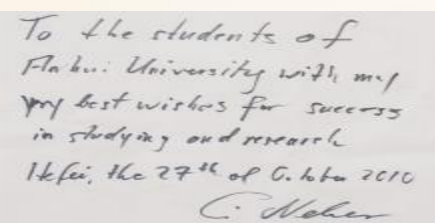 To the students of
Anhui University with my
my best wishes for success
in studying and research
Hefei, the 27th of October 2010